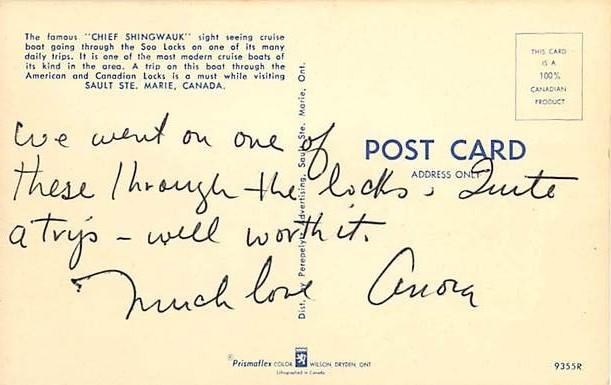 The famous "CHIEF SHINGWAUK" sight seeing cruise
boat going through the Soo Locks on one of its many
daily trips. It is one of the most modern cruise boats of
its kind in the area. A trip on this boat through the
American and Canadian Locks is a must while visiting
SAULT STE. MARIE, CANADA.
THIS CARD
IS A
100%
CANADIAN
PRODUCT
POST CARD
ADDRESS ONLY
Dist. by Perepelytz Advertising, Sault Ste. Marie, Ont.
We went on one of
these through the locks. Quite
a trip - well worth it.
Much love
Prismaflex COLOR WILSON, DRYDEN, ONT
Lithographed in Canada
9355R